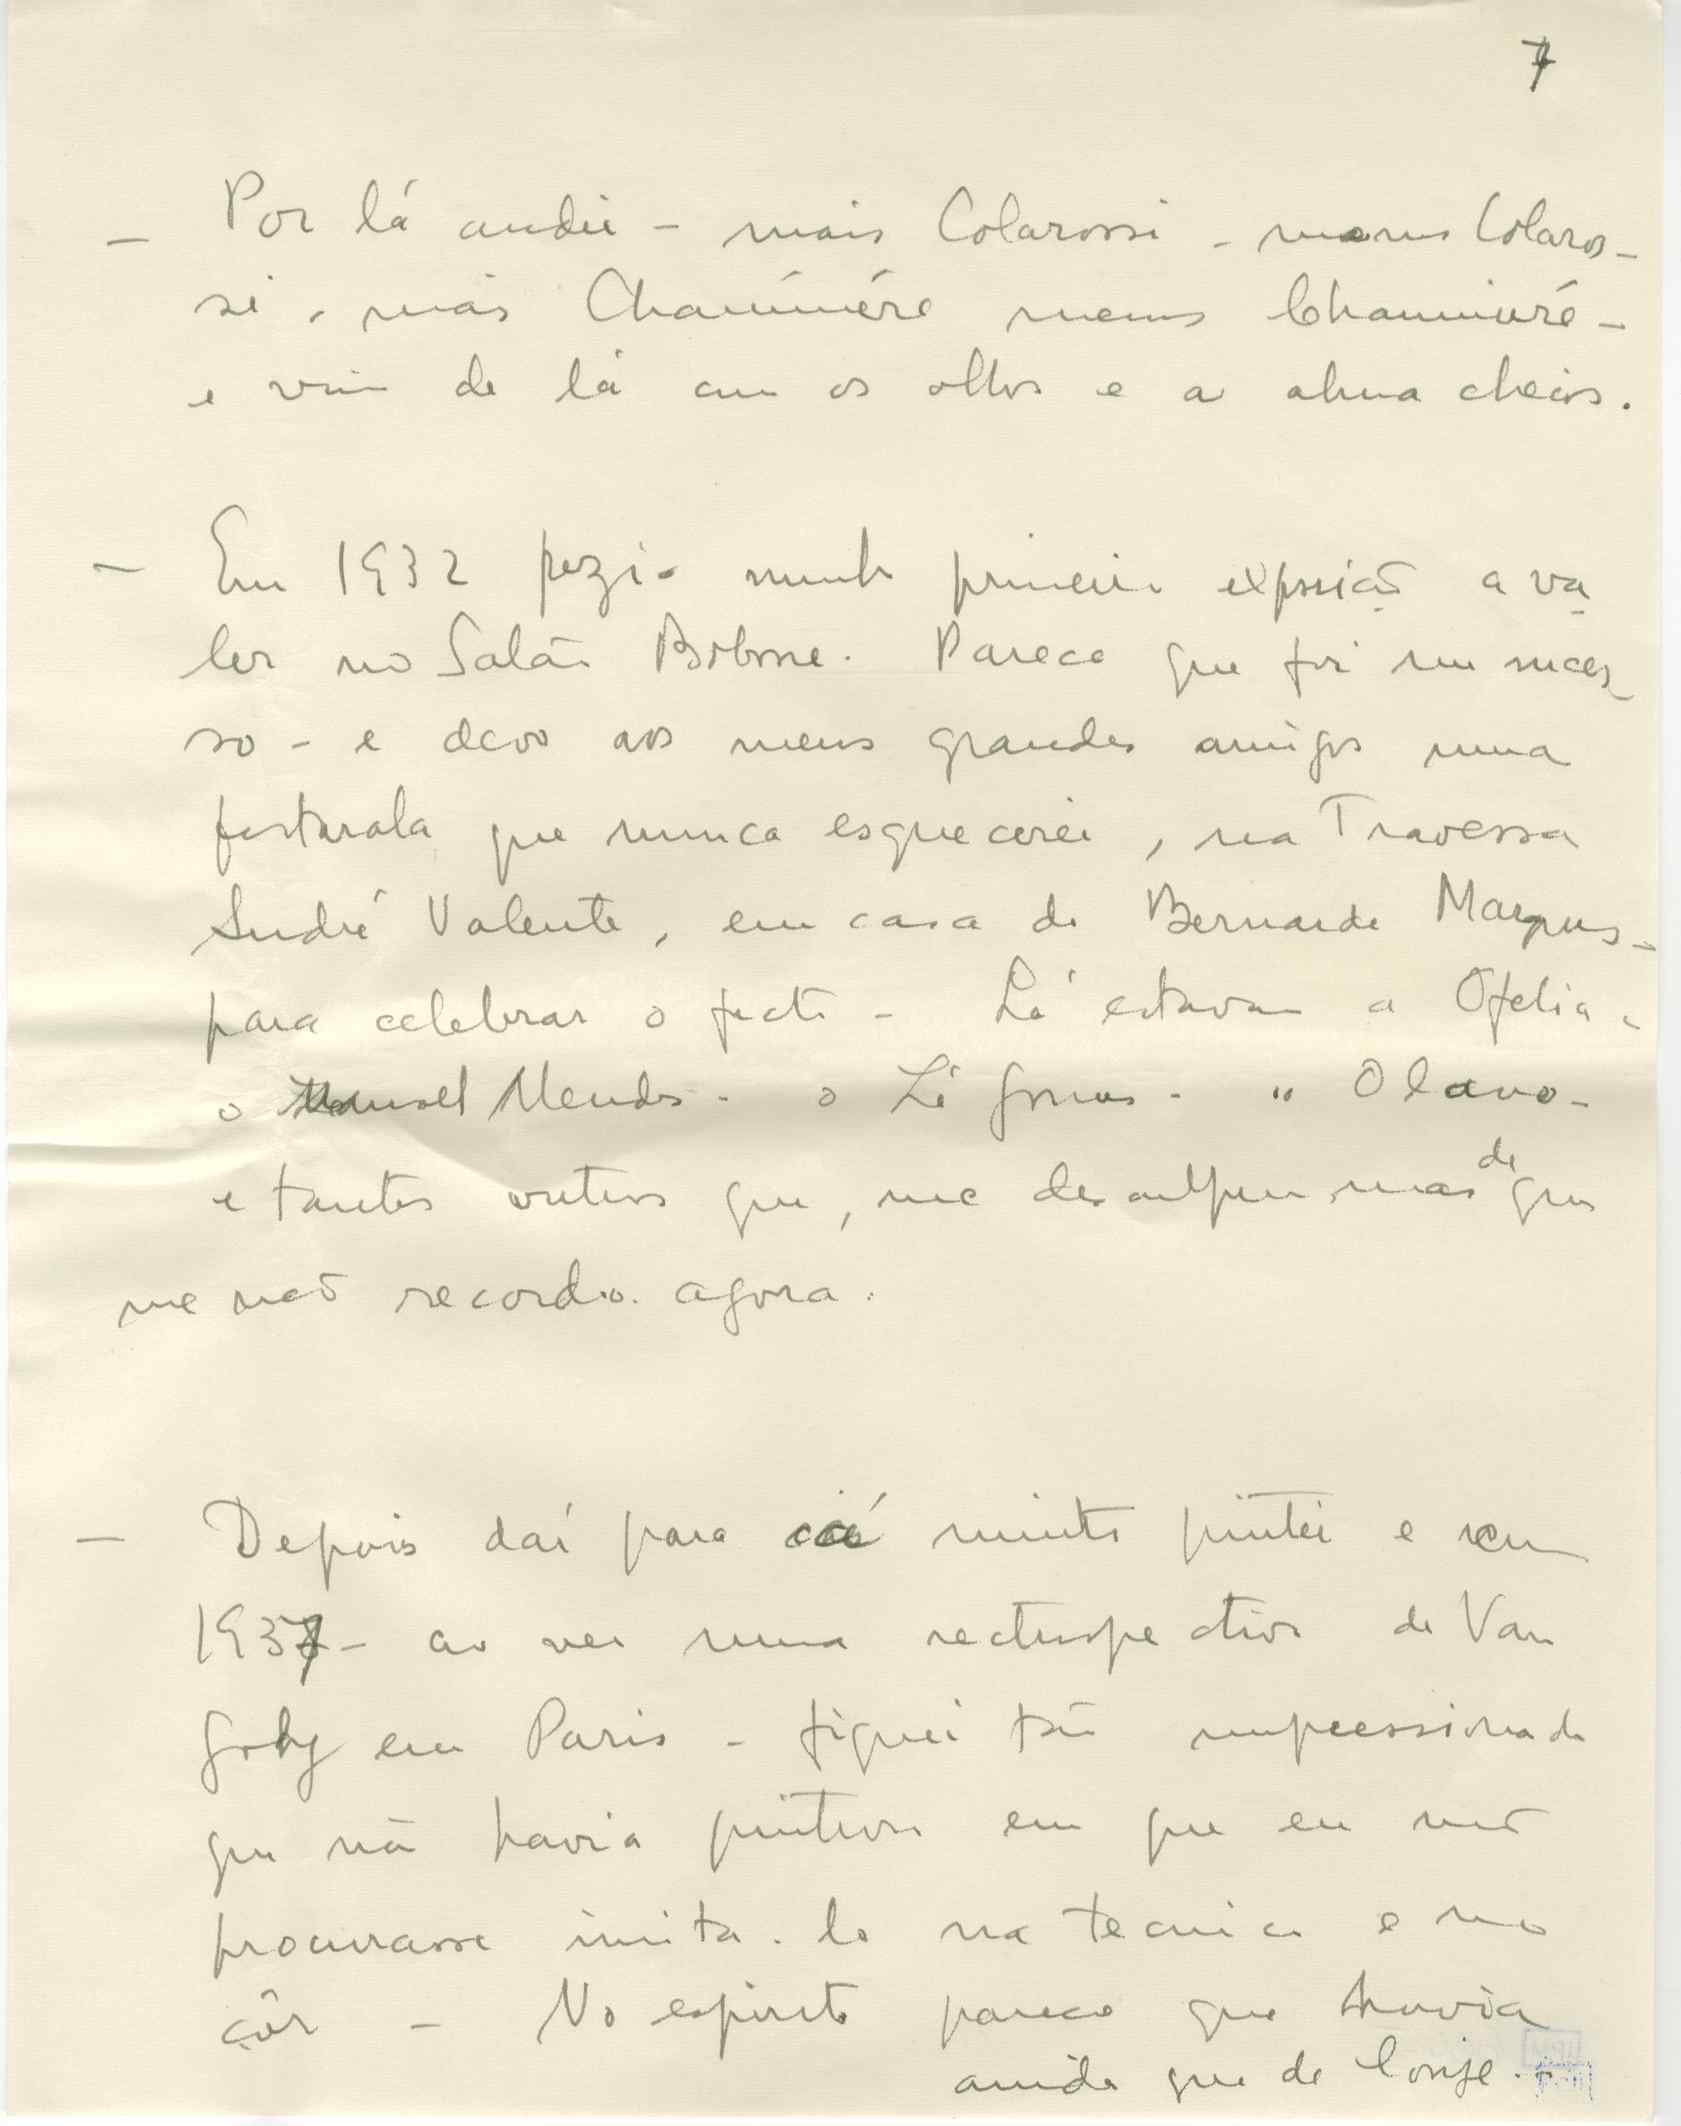 7
— Por lá andei – mais Colarossi – menos Colaros-
si, mais Chaumière menos Chaumière –
e vim de lá com os olhos e a alma cheios.
— Em 1932 fiz a minha primeira exposição a va
ler no Salão Bobone. Parece que foi um suces-
so – e devo aos meus grandes amigos uma
festarola que nunca esquecerei, na Travessa
André Valente, em casa de Bernardo Marques –
para celebrar o facto – Lá estavam a Ofelia –
o Manuel Mendes – o Zé Gomes – o Olavo –
e tantos outros que, me desculpem, mas de que
me não recordo agora.
— Depois daí para cá muito pintei e em
1937 – ao ver uma rectrospectiva de Van
Gohg em Paris – fiquei tão impressionada
que não havia pintura em que eu não
procurasse imita-lo na tecnica e na
côr – No espirito parece que havia
ainda que de longe.